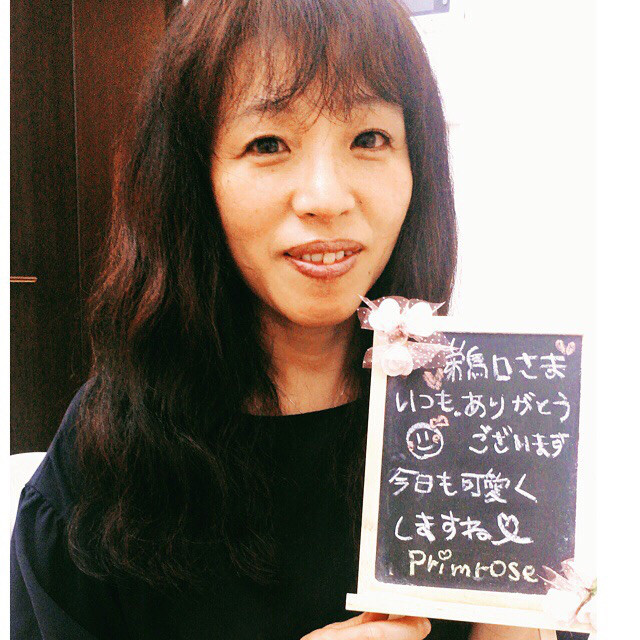 鵜口さま
いつも.ありがとう
ございます
今日も可愛く
しますね
Primrose